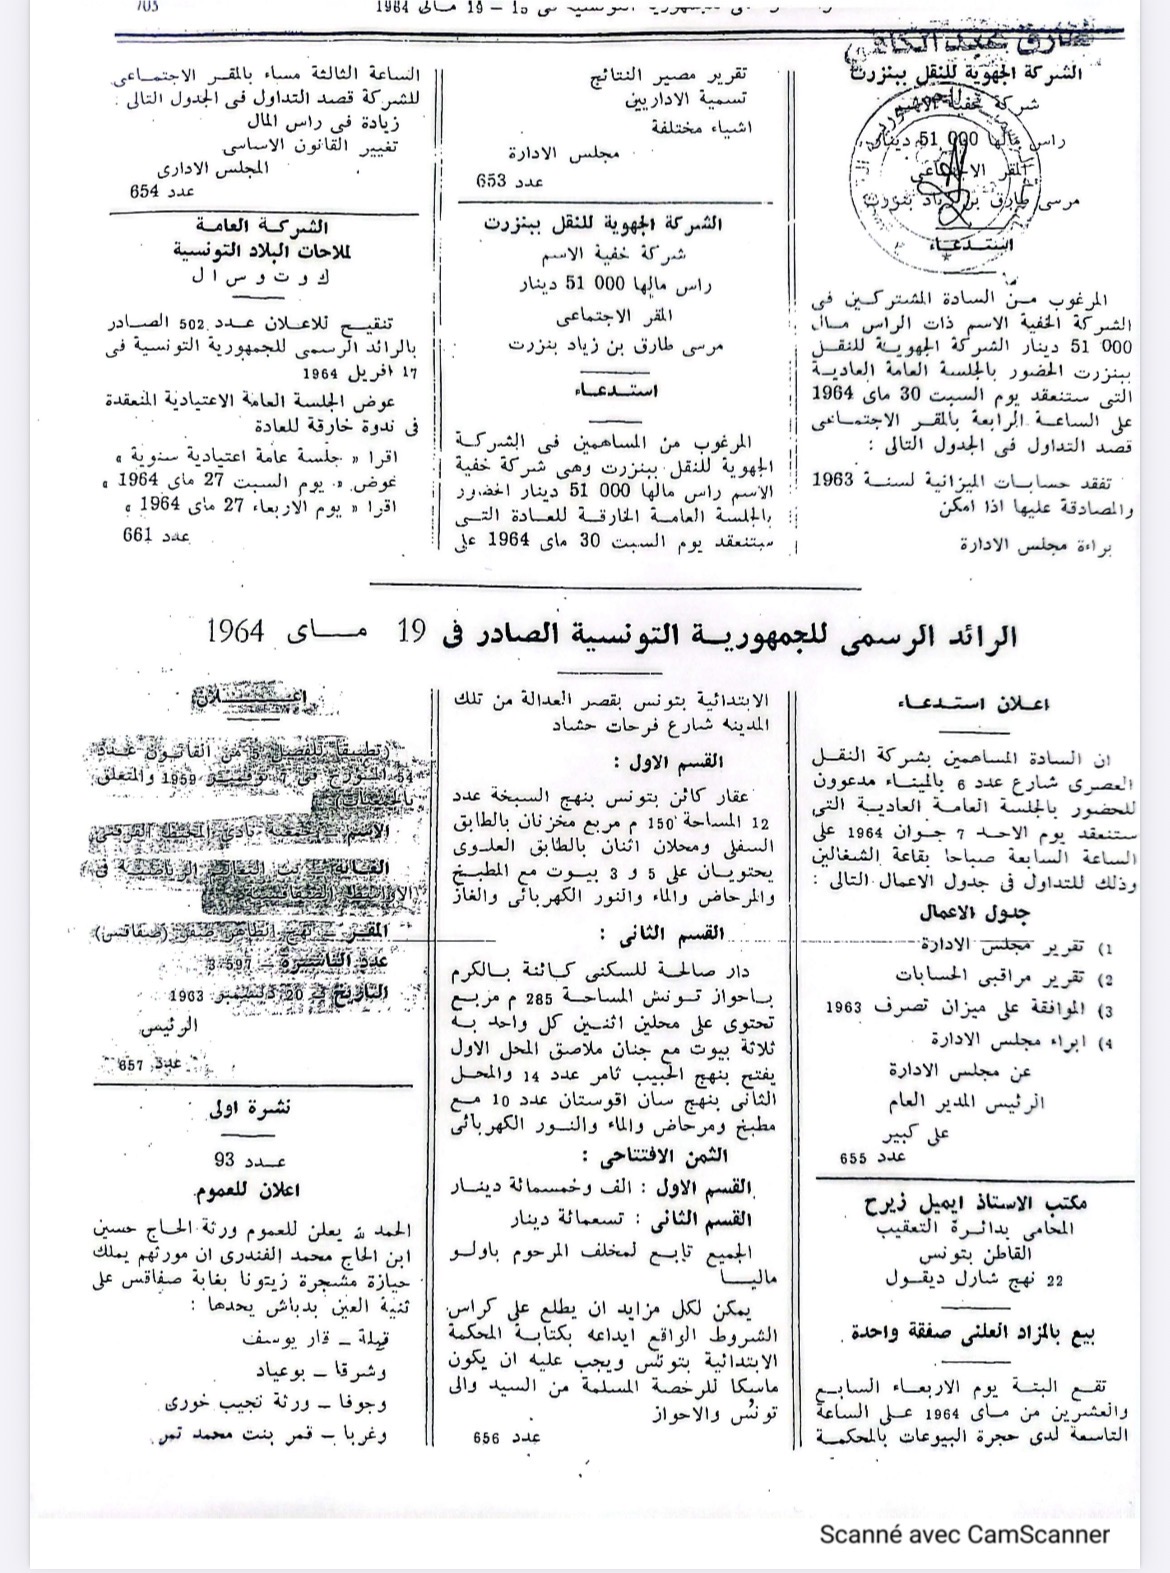 705
15 – 19 مـاى 1964
الشركة الجهوية للنقل ببنزرت
شركة خفية الاسم
راس مالها 000 51 دينار
المقر الاجتماعى
مرسى طارق بن زياد بنزرت
استدعاء
المرغوب من السادة المشتركين فى
الشركة الخفية الاسم ذات الراس مال
000 51 دينار الشركة الجهوية للنقل
ببنزرت الحضور بالجلسة العامة العادية
التى ستنعقد يوم السبت 30 ماى 1964
على الساعة الرابعة بالمقر الاجتماعى
قصد التداول فى الجدول التالى :
تفقد حسابات الميزانية لسنة 1963
والمصادقة عليها اذا امكن
براءة مجلس الادارة
تقرير مصير النتائج
تسمية الاداريين
اشياء مختلفة
مجلس الادارة
عدد 653
الشركة الجهوية للنقل ببنزرت
شركة خفية الاسم
راس مالها 000 51 دينار
المقر الاجتماعى
مرسى طارق بن زياد بنزرت
استدعاء
المرغوب من المساهمين فى الشركة
الجهوية للنقل ببنزرت وهى شركة خفية
الاسم راس مالها 000 51 دينار الحضور
بالجلسة العامة الخارقة للعادة التى
ستنعقد يوم السبت 30 ماى 1964 على
الساعة الثالثة مساء بالمقر الاجتماعى
للشركة قصد التداول فى الجدول التالى :
زيادة فى راس المال
تغيير القانون الاساسى
المجلس الادارى
عدد 654
الشركة العامة
لملاحات البلاد التونسية
ك و ت و س ا ل
تنقيح للاعلان عدد 502 الصادر
بالرائد الرسمى للجمهورية التونسية فى
17 افريل 1964
عوض الجلسة العامة الاعتيادية المنعقدة
فى ندوة خارقة للعادة
اقرا « جلسة عامة اعتيادية سنوية »
عوض « يوم السبت 27 ماى 1964 »
اقرا « يوم الاربعاء 27 ماى 1964 »
عدد 661
الرائد الرسمى للجمهورية التونسية الصادر فى 19 مـاى 1964
اعلان استدعاء
ان السادة المساهمين بشركة النقل
العصرى شارع عدد 6 بالميناء مدعوون
للحضور بالجلسة العامة العادية التى
ستنعقد يوم الاحد 7 جوان 1964 على
الساعة السابعة صباحا بقاعة الشغالين
وذلك للتداول فى جدول الاعمال التالى :
جدول الاعمال
1) تقرير مجلس الادارة
2) تقرير مراقبى الحسابات
3) الموافقة على ميزان تصرف 1963
4) ابراء مجلس الادارة
عن مجلس الادارة
الرئيس المدير العام
على كبير
عدد 655
مكتب الاستاذ ايميل زيرح
المحامى بدائرة التعقيب
القاطن بتونس
22 نهج شارل ديقول
بيع بالمزاد العلنى صفقة واحدة
تقع البتة يوم الاربعاء السابع
والعشرين من ماى 1964 على الساعة
التاسعة لدى حجرة البيوعات بالمحكمة
الابتدائية بتونس بقصر العدالة من تلك
المدينة شارع فرحات حشاد
القسم الاول :
عقار كائن بتونس بنهج السبخة عدد
12 المساحة 150 م مربع مخزنان بالطابق
السفلى ومحلان اثنان بالطابق العلوى
يحتويان على 5 و 3 بيوت مع المطبخ
والمرحاض والماء والنور الكهربائى والغاز
القسم الثانى :
دار صالحة للسكنى كائنة بالكرم
باحواز تونس المساحة 285 م مربع
تحتوى على محلين اثنين كل واحد به
ثلاثة بيوت مع جنان ملاصق المحل الاول
يفتح بنهج الحبيب ثامر عدد 14 والمحل
الثانى بنهج سان اقوستان عدد 10 مع
مطبخ ومرحاض والماء والنور الكهربائى
الثمن الافتتاحى :
القسم الاول : الف وخمسمائة دينار
القسم الثانى : تسعمائة دينار
الجميع تابع لمخلف المرحوم باولو
ماليا
يمكن لكل مزايد ان يطلع على كراس
الشروط الواقع ايداعه بكتابة المحكمة
الابتدائية بتونس ويجب عليه ان يكون
ماسكا للرخصة المسلمة من السيد والى
تونس والاحواز
عدد 656
اعـــلان
(تطبيقا للفصل 5 من القانون عدد
54 المؤرخ فى 7 نوفمبر 1959 والمتعلق
بالجمعيات)
الاسم – جمعية نادى المحيط القرقنى
الغاية – بث الثقافة الرياضية فى
الاواسط الصفاقسية
المقر – نهج الطاهر صفر (صفاقس)
عدد التاشيرة – 3.597
التاريخ – 20 ديسمبر 1963
الرئيس
عدد 657
نشرة اولى
عدد 93
اعلان للعموم
الحمد لله يعلن للعموم ورثة الحاج حسين
ابن الحاج محمد الفندرى ان مورثهم يملك
حيازة مشجرة زيتونا بغابة صفاقس على
ثنية العين بدباش يحدها :
قبلة – قار يوسف
وشرقا – بوعياد
وجوفا – ورثة نجيب خورى
وغربا – قمر بنت محمد تمر
Scanné avec CamScanner